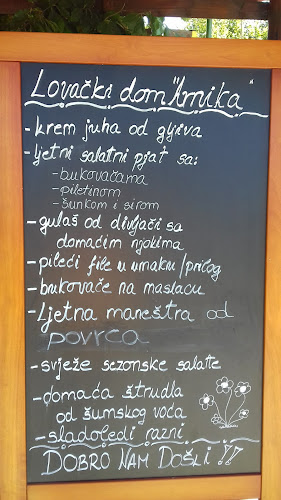 Lovački dom "Arnika"
- krem juha od gljiva
- ljetni salatni pjat sa:
- bukovačama
- piletinom
- šunkom i sirom
- gulaš od divljači sa
domaćim njokima
- pileći file u umaku/prilog
- bukovače na maslacu
- Ljetna maneštra od
povrća
- svježe sezonske salate
- domaća štrudla
od šumskog voća
- sladoledi razni
DOBRO NAM DOŠLI !!